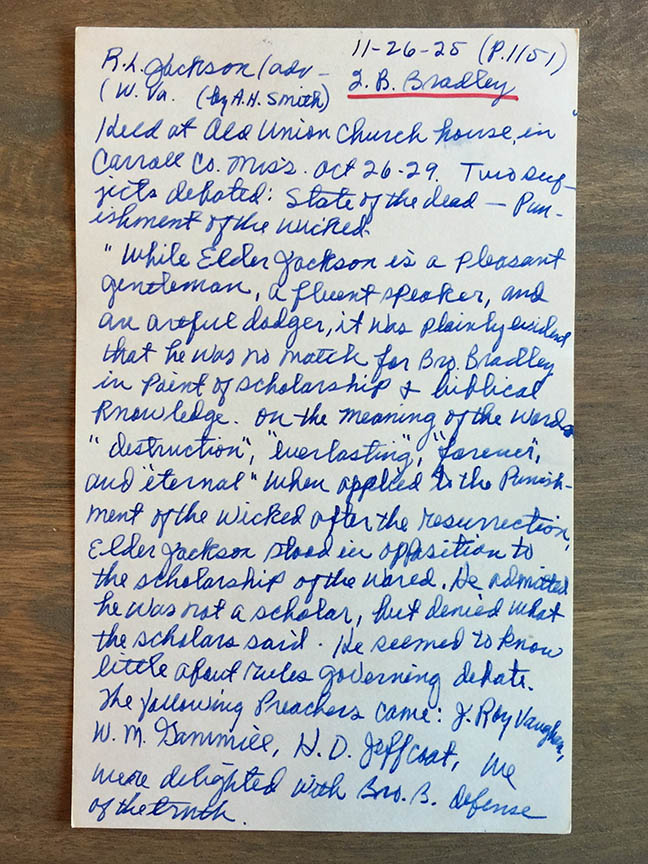 R.L. Jackson (adv - 11-26-25 (P.1151)
(W. Va. (by A.H. Smith) J. B. Bradley
Held at Old Union Church house, in
Carroll Co. Miss. Oct 26-29. Two sub-
jects debated: State of the dead — Pun-
ishment of the wicked.
"While Elder Jackson is a pleasant
gentleman, a fluent speaker, and
an artful dodger, it was plainly evident
that he was no match for Bro. Bradley
in point of scholarship & biblical
knowledge. On the meaning of the words
"destruction", "everlasting", "forever",
and "eternal" when applied to the Punish-
ment of the wicked after the resurrection,
Elder Jackson stood in opposition to
the scholarship of the world. He admitted
he was not a scholar, but denied what
the scholars said. He seemed to know
little about rules governing debate.
The following Preachers came: J. Roy Vaughan,
W. M. Gammill, H. D. Jeffcoat, We
were delighted with Bro. B. defense
of the truth.